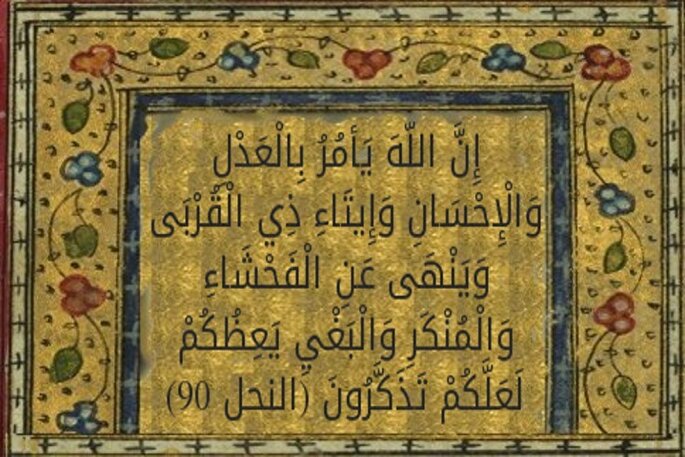 إِنَّ اللَّهَ يَأمُرُ بِالْعَدْلِ
وَالْإِحْسَانِ وَإِيتَاءِ ذِي الْقُرْبَى
وَيَنْهَى عَنِ الْفَحْشَاءِ
وَالْمُنْكَرِ وَالْبَغْيِ يَعِظُكُمْ
لَعَلَّكُمْ تَذَكَّرُونَ (النحل 90)